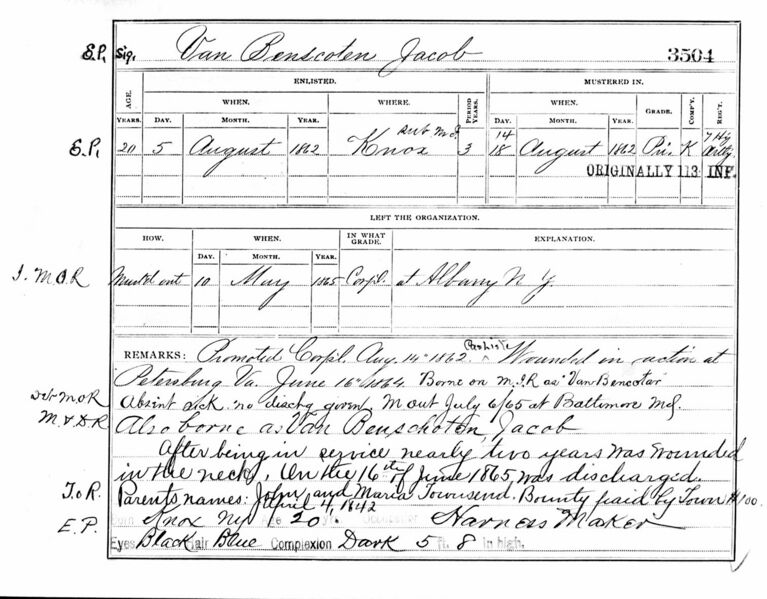 E.P. Sig. Van Benscoten Jacob 3504
ENLISTED. MUSTERED IN.
AGE. WHEN. WHERE. PERIOD WHEN. GRADE. COMP'Y. REG'T.
YEARS. DAY. MONTH. YEAR. YEARS. DAY. MONTH. YEAR.
M.I. 14 7 Hy
E.P. 20 5 August 1862 Knox 3 18 August 1862 Pri. K Arty.
ORIGINALLY 113 INF.
LEFT THE ORGANIZATION.
HOW. WHEN. IN WHAT GRADE. EXPLANATION.
DAY. MONTH. YEAR.
M.O.R Must'd out 10 May 1865 Corpl. at Albany N Y.
REMARKS: Promoted Corpl. Aug. 14" 1862. Wounded in action at
Petersburg Va. June 16" 1864. Borne on M.I.R as Van Bencotar
Det M.O.R Absent sick no dischg given M out July 6/65 at Baltimore Md.
M. & D R Also borne as Van Benschoten, Jacob
After being in service nearly two years was wounded
in the neck, On the 16th of June 1865, was discharged.
T. o R. Parents names: John and Maria Townsend. Bounty paid by Town $100.
April 4, 1842
E.P. Born Knox NY Age 20 yr. Occupation Harness Maker
Eyes Black Hair Blue Complexion Dark 5 ft. 8 in high.